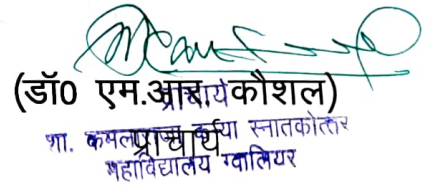 (डॉ0 एम.आर. कौशल)
प्राचार्य
प्राचार्य
शा. कमला कन्या स्नातकोत्तर
महाविद्यालय ग्वालियर